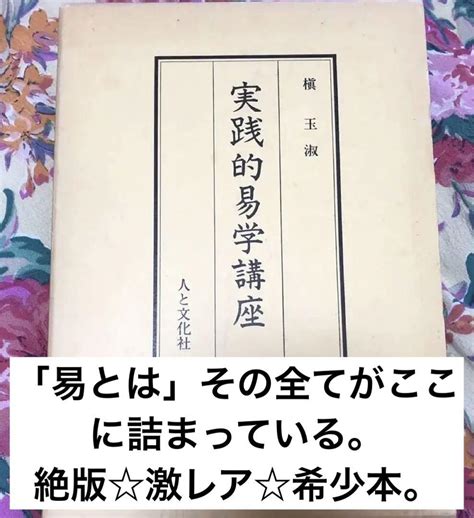 槇玉淑
実践的易学講座
人と文化社
「易とは」その全てがここ
に詰まっている。
絶版☆激レア☆希少本。